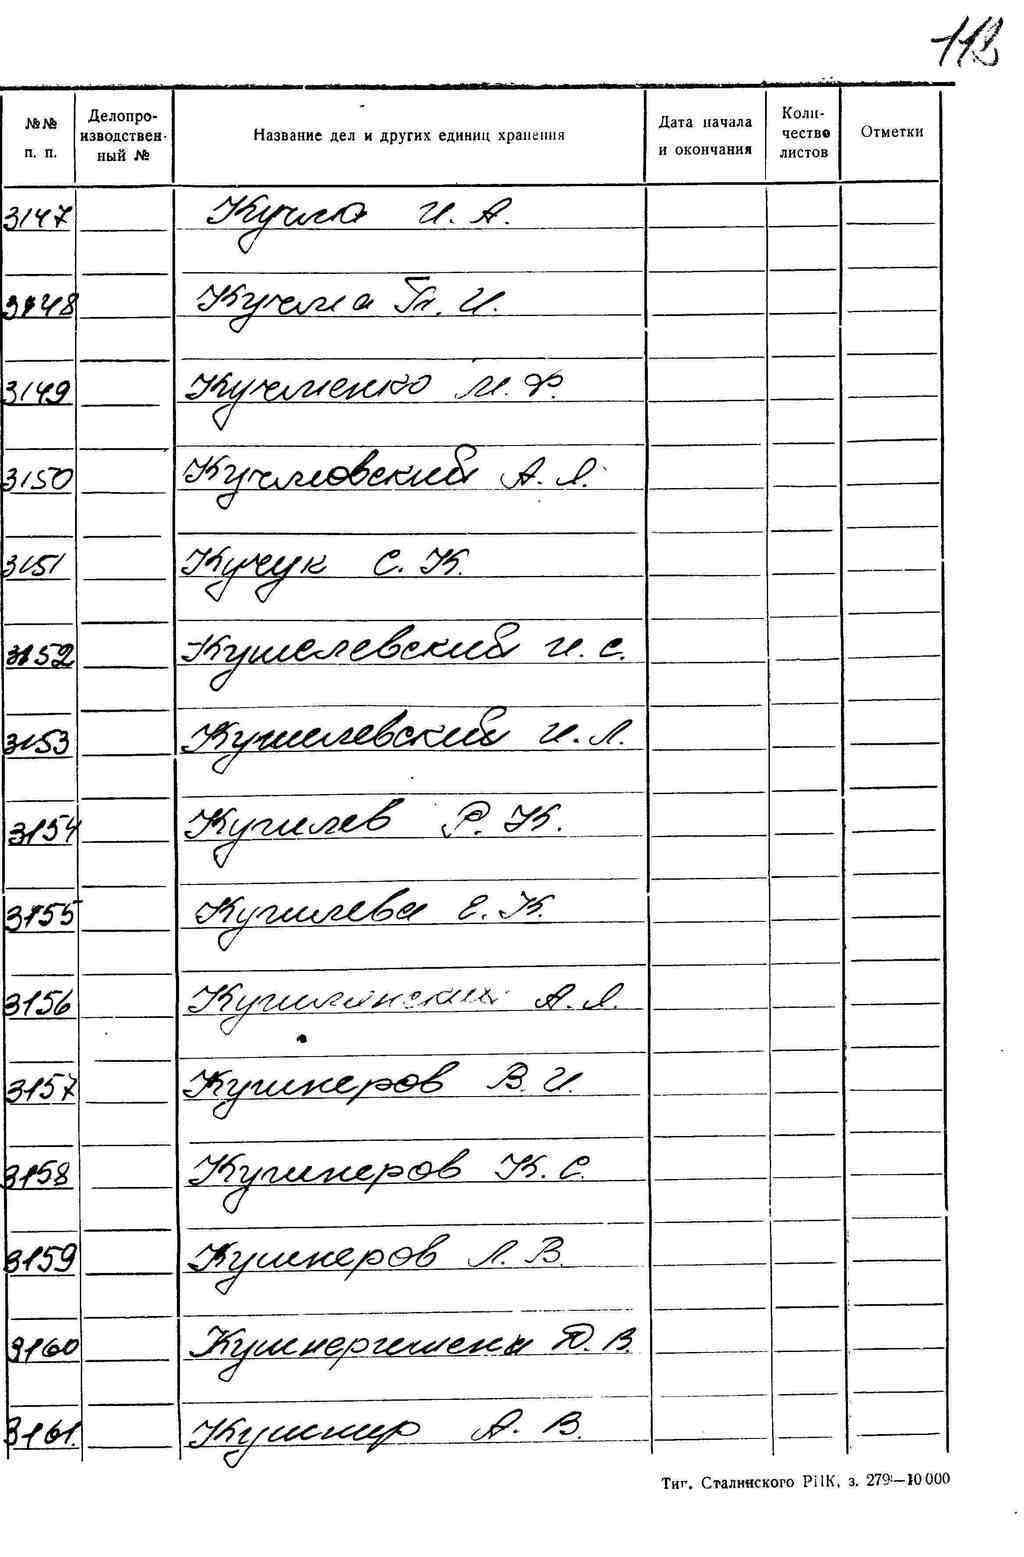 112
№№ п. п. Делопроизводственный № Название дел и других единиц хранения Дата начала и окончания Количество листов Отметки
3147 Кучма И. А.
3148 Кучма Гл. И.
3149 Кучменко М. Ф.
3150 Кучмовский А. Л.
3151 Кучук С. К.
3152 Кушелевский И. С.
3153 Кушелевский И. Л.
3154 Кушлев Р. К.
3155 Кушлева Е. К.
3156 А. Л.
3157 Кушнеров В. И.
3158 Кушнеров К. С.
3159 Кушнеров Л. В.
3160 В.
3161. Кушнир А. В.
Тип. Сталинского РПК, з. 279—10 000